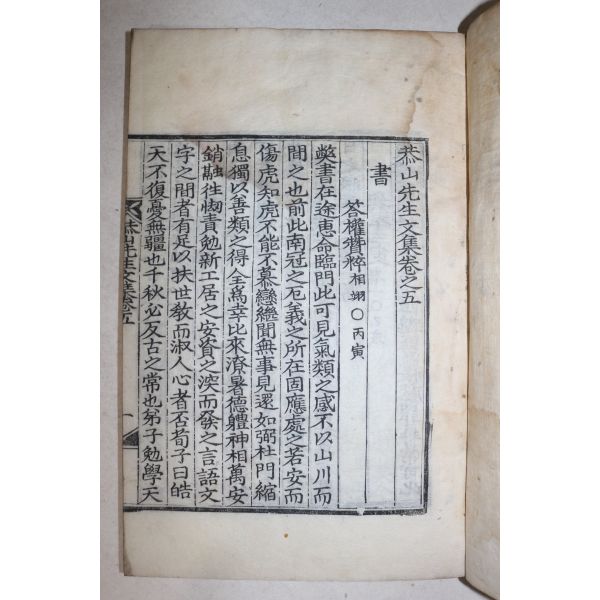 恭山先生文集卷之五
書
答權贊粹相翊〇丙寅
弊書在途惠命臨門此可見氣類之感不以山川而
間之也前此南冠之厄義之所在固應處之若安而
傷虎知虎不能不慕戀繼聞無事見還如弼杜門縮
息獨以善類之得全爲幸比來潦暑德軆神相萬安
銷融徃㤼責勉新工居之安資之深而發之言語文
字之間者有足以扶世敎而淑人心者否荀子曰皓
天不復憂無疆也千秋必反古之常也弟子勉學天
恭山先生文集卷五
一